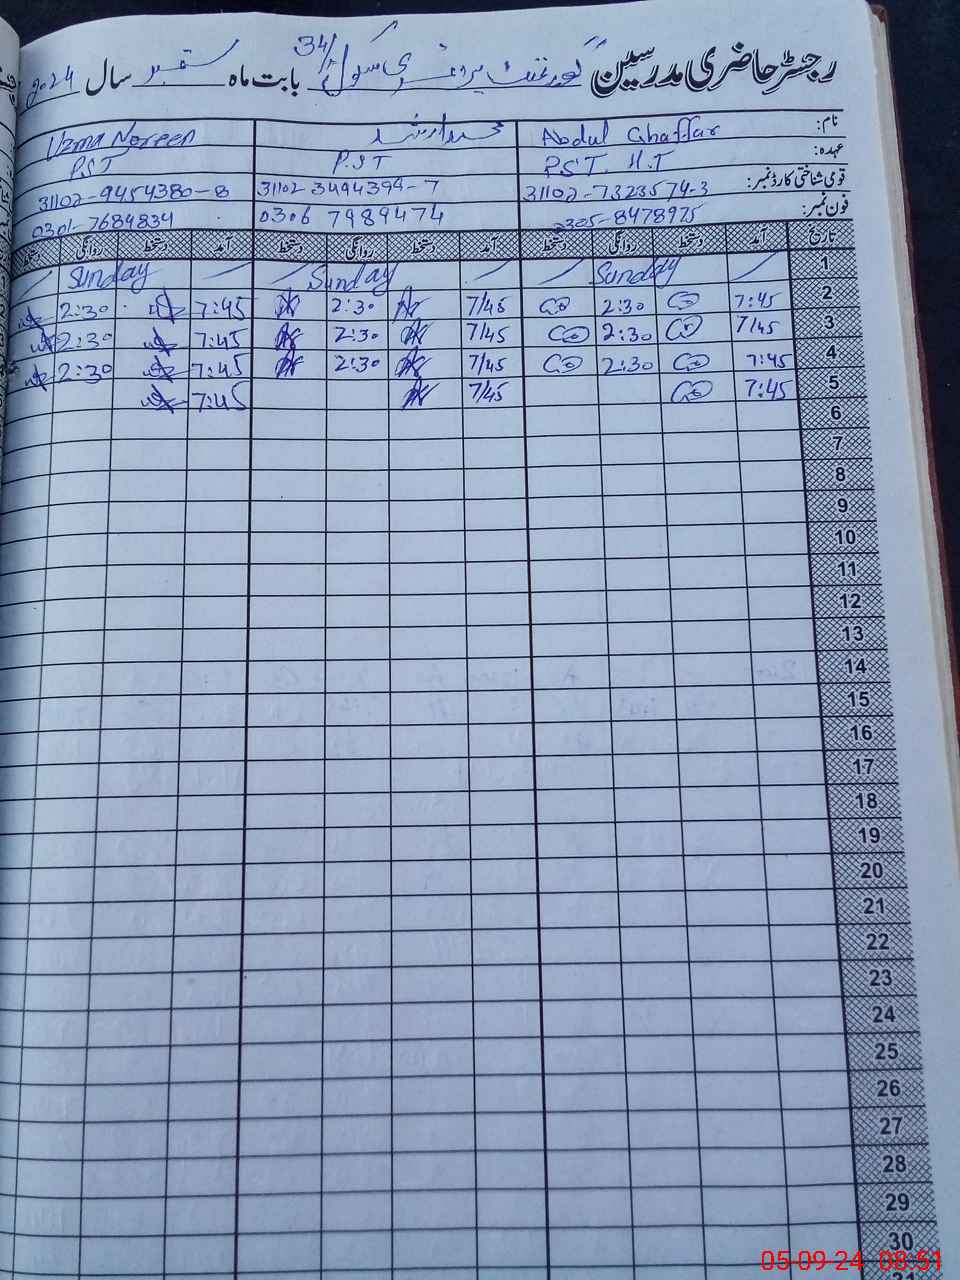 رجسٹر حاضری مدرسین گورنمنٹ پرائمری سکول 34/ بابت ماہ ستمبر سال 2024
نام: Abdul Ghaffar محمد ارشد Uzma Noreen
عہدہ: P.S.T. H.T P.ST P.S.T
قومی شناختی کارڈ نمبر: 31102-7323574-3 31102-3494394-7 31102-9454380-8
فون نمبر: 0305-8478975 0306 7989474 0301-7684834
تاریخ آمد دستخط روانگی دستخط آمد دستخط روانگی دستخط آمد دستخط روانگی دستخط
1 Sunday Sunday Sunday
2 7:45 2:30 7/45 2:30 7:45 2:30
3 7/45 2:30 7/45 2:30 7:45 2:30
4 7:45 2:30 7/45 2:30 7:45 2:30
5 7:45 7/45 7:45
6
7
8
9
10
11
12
13
14
15
16
17
18
19
20
21
22
23
24
25
26
27
28
29
30
05-09-24 08:51